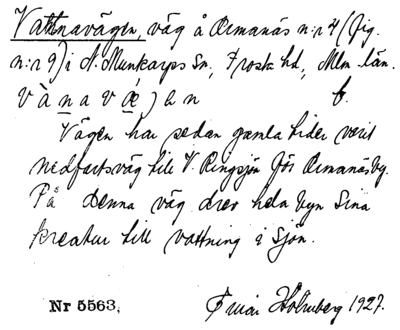 Vattnavägen, väg å Ormanäs n:r 4 (fig.
n:r 9) i N. Munkarps Sn, Frosta hd, Mlm län.
v à n a v æ ) ə n b.
Vägen har sedan gamla tider varit
nedfartsväg till V. Ringsjön för Ormanäs by.
På denna väg drev hela byn sina
kreatur till vattning i Sjön.
Nr 5563, Holmberg 1927.